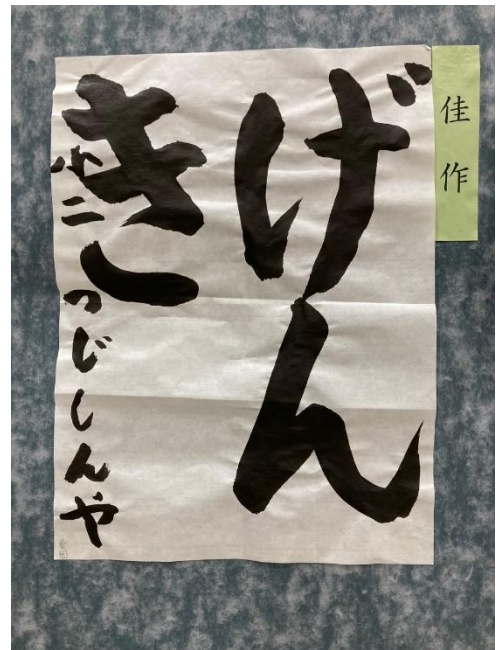 佳作
げん
き
小二
つじしんや